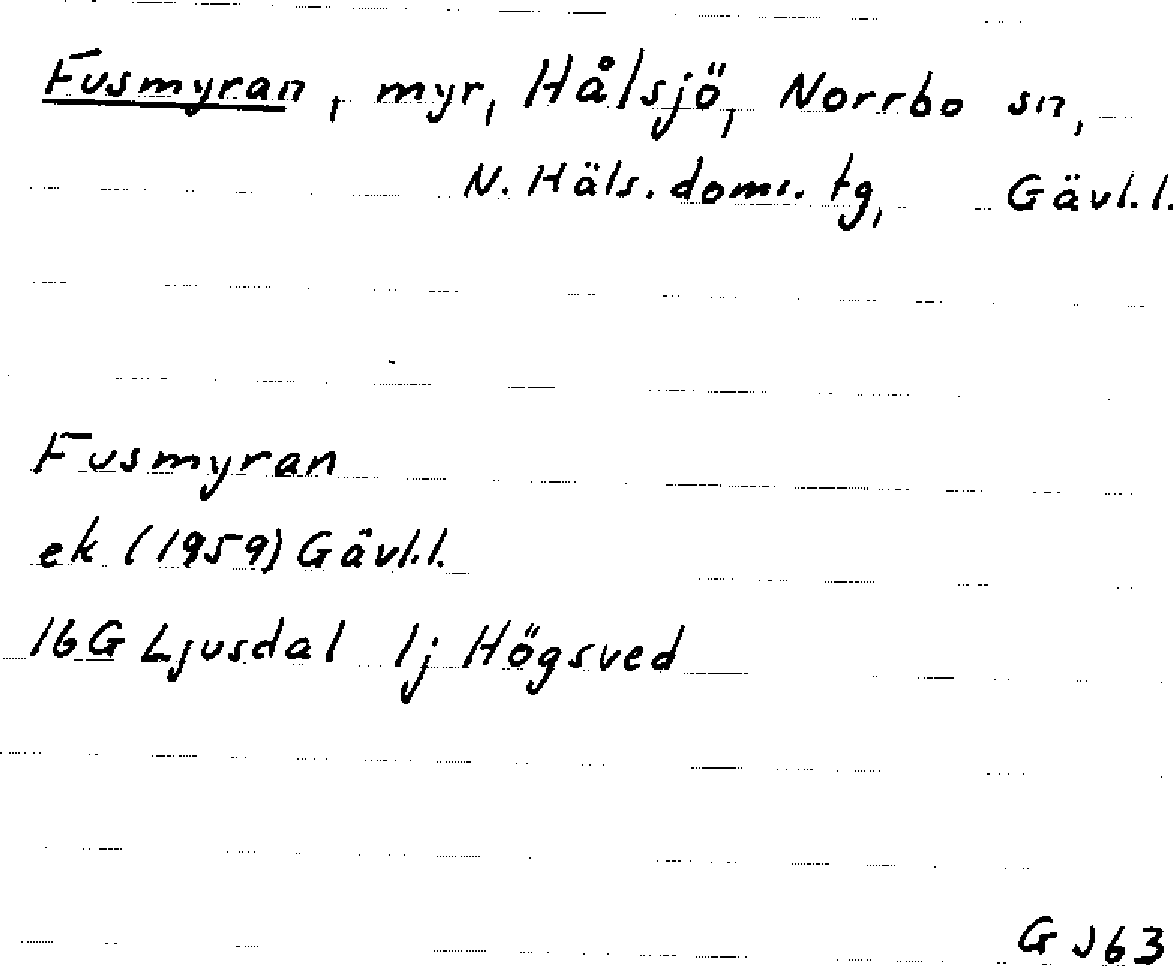 Fusmyran, myr, Hålsjö, Norrbo sn,
N. Häls. doms. tg, Gävl. l.
Fusmyran
ek (1959) Gävl. l.
16G Ljusdal 1j Högsved
G J63